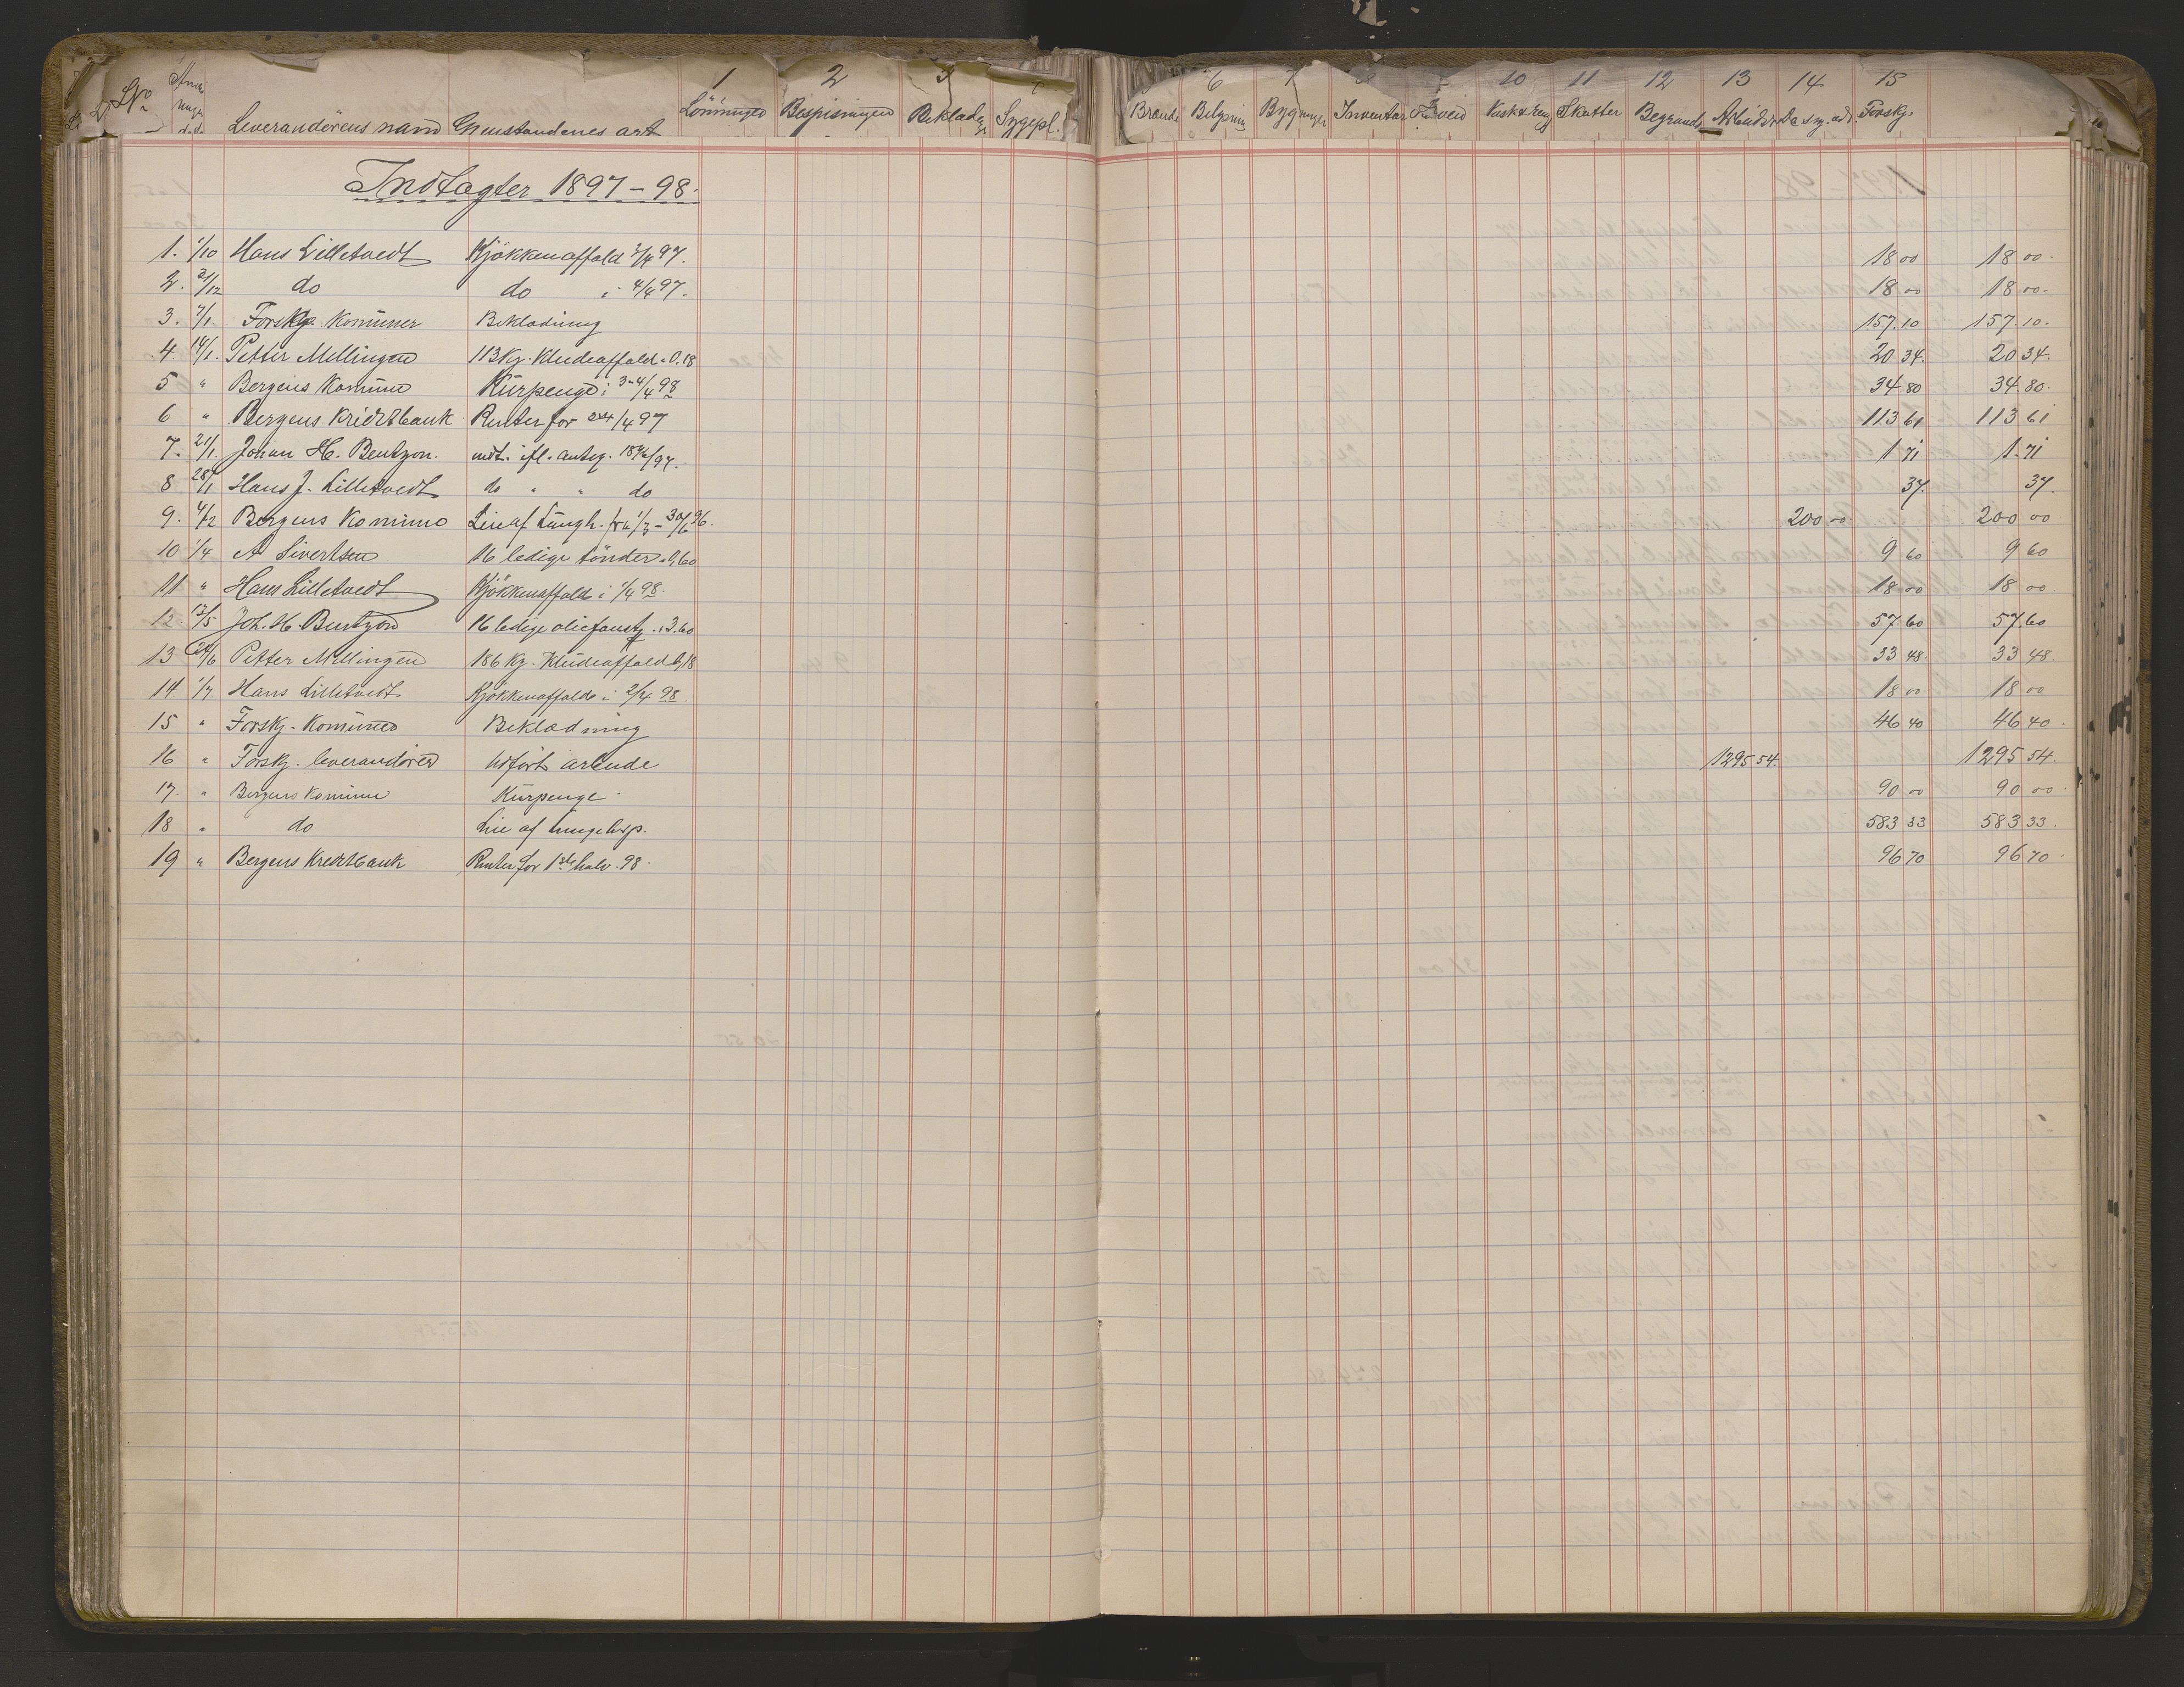 1 2 3 6 7 10 11 12 13 14 15
No Leverandörens navn Genstandenes art Lönninger Bespisningen Beklædn Sygepl. Brænde Belysning Bygninger Inventar Skatter Begravels Forskj.
Indtægter 1897-98.
1. 1/10 Hans Lilletvedt Kjökkenaffald 3/4 97. 18 00 18 00.
2. 31/12 do do i 4/4 97. 18 00 18 00.
3. 7/1. Forskj. Komuner Beklædning 157.10 157.10.
4. 14/1. Petter Mellingen 113 Kg. Kludeaffald a 0.18 20 34. 20 34.
5 " Bergens Komune Kurpenge i 3-4/4 98 34 80 34.80.
6 " Bergens Kreditbank Renter for 97 113 61 113 61
7. 21/1. Johan H. Bentzon. 1 71 1.71
8 28/1 Hans J. Lilletvedt do " " do 37. 37.
9. 4/2 Bergens Komune Leie af Lungh. fra 1/3 - 30/6 96. 200 00 200 00
10 1/4 A Sivertsen 16 ledige tönder a 0,60 9 60 9 60
11 " Hans Lilletvedt Kjökkenaffald i 1/4 98. 18 00 18 00
12. 13/5 Joh. H. Bentzon 16 ledige oliefoustg. a 3.60 57 60 57.60
13 /6 Petter Mellingen 186 Kg. Kludeaffald 0,18 33 48. 33 48.
14 1/7 Hans Lilletvedt Kjökkenaffald i 2/4 98. 18 00 18 00
15 " Forskj. Komuner Beklædning 46 40 46 40.
16 " Forskj. leverandörer Udfört arbeide 1295 54. 1295 54.
17. " Bergens Komune Kurpenge 90 00 90 00.
18 " do Leie af Lungehsp. 583 33 583 33.
19 " Bergens Kreditbank Renter for 1ste halv. 98. 96 70 96 70.